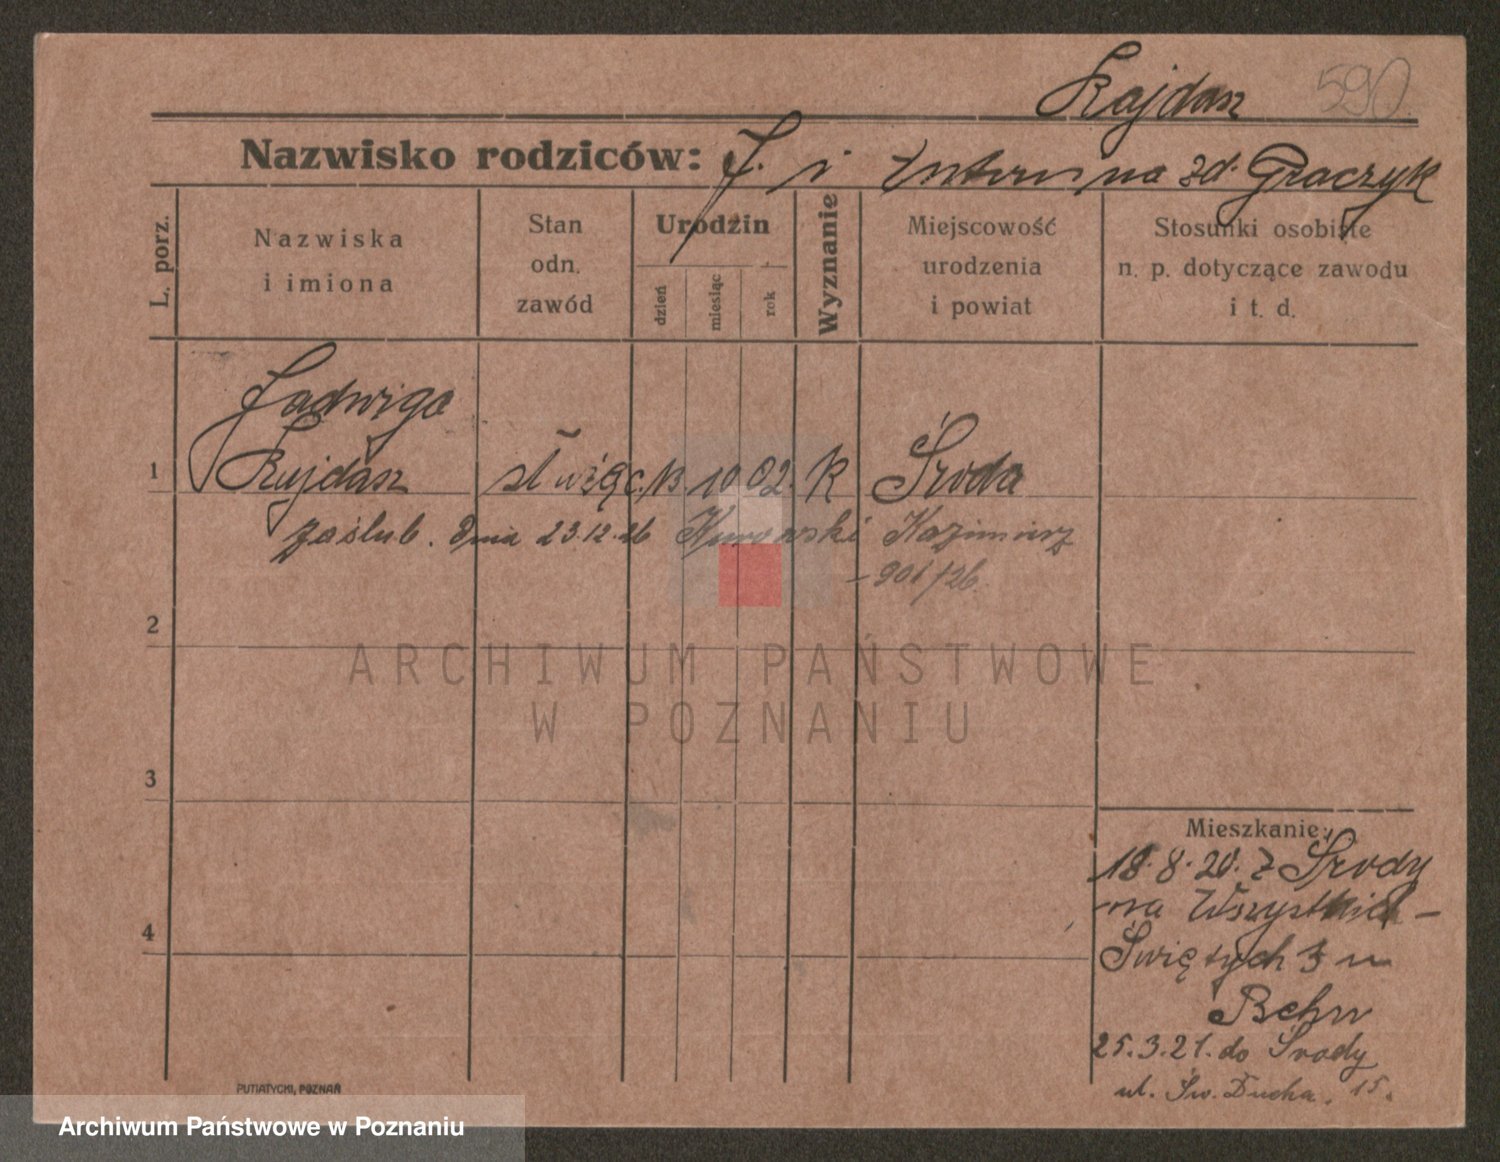 Rajdasz 590
Nazwisko rodziców: J. i Antonina zd. Graczyk
L. porz.
Nazwiska
i imiona
Stan
odn.
zawód
Urodzin
dzień
miesiąc
rok
Wyznanie
Miejscowość
urodzenia
i powiat
Stosunki osobiste
n. p. dotyczące zawodu
i t. d.
Jadwiga
1 Rajdasz służąc. 13. 10 02. K Środa
zaślub. dnia 23.12.26 Kurowski Kazimierz
901/26.
2
ARCHIWUM PAŃSTWOWE
W POZNANIU
3
4
Mieszkanie:
18.8.20. z Środy
na Wszystkich
Świętych 3 u
25.3.21. do Środy
ul. Św. Ducha. 15.
PUTIATYCKI, POZNAŃ
Archiwum Państwowe w Poznaniu